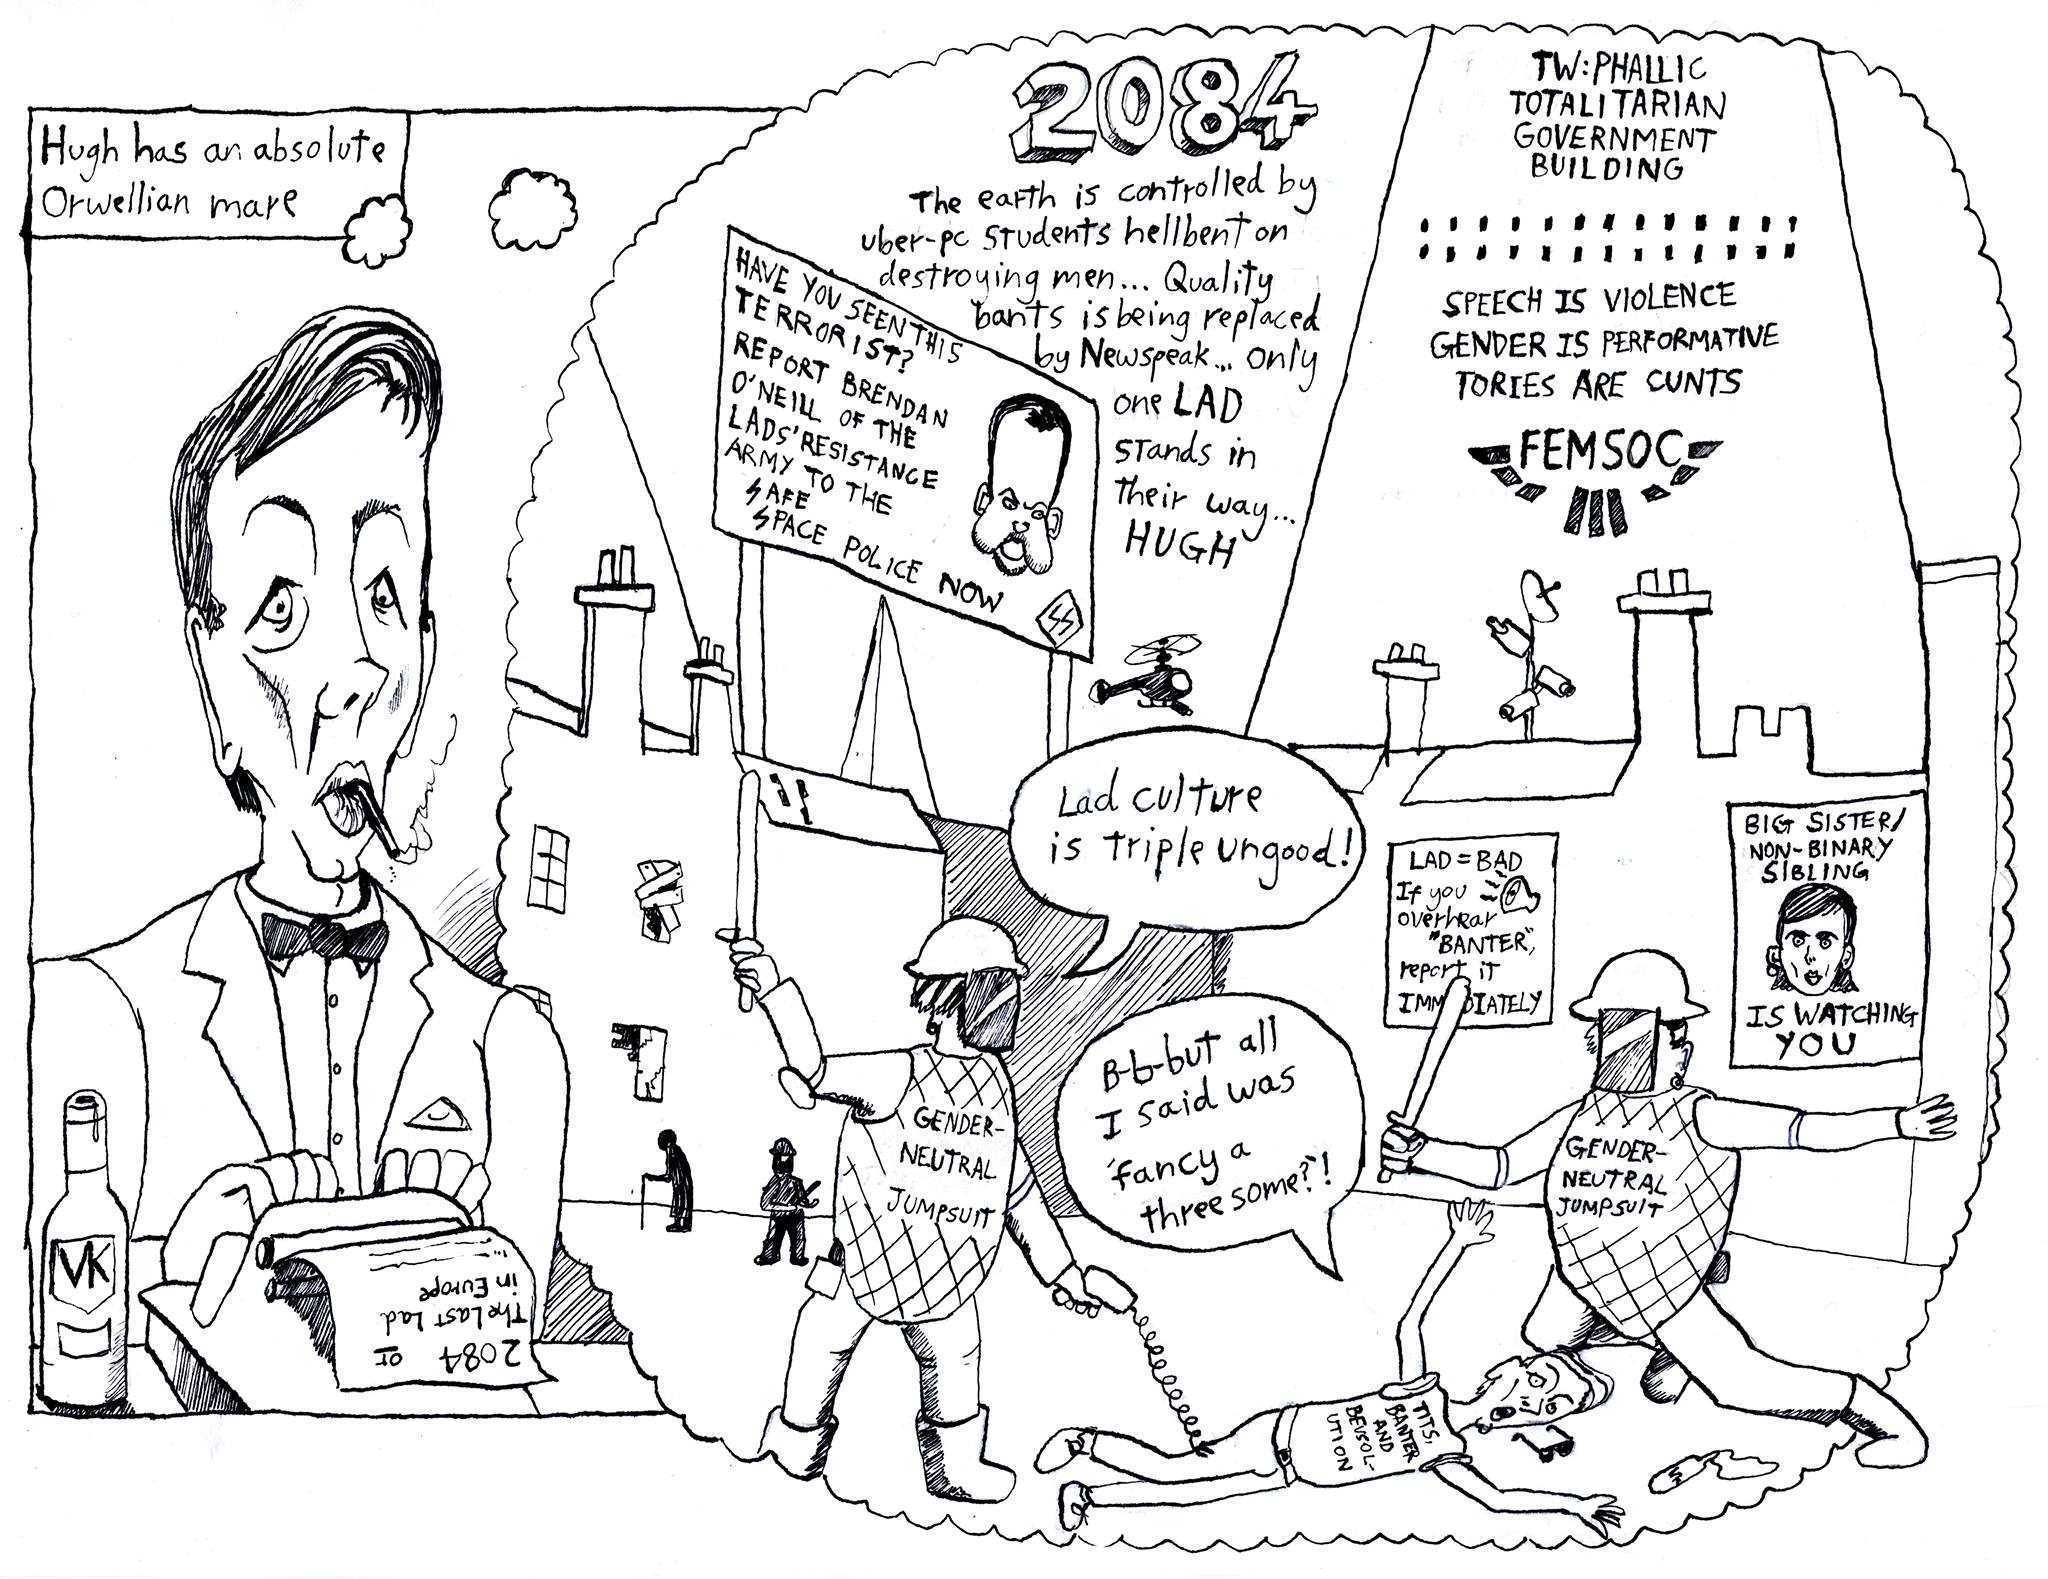 Hugh has an absolute
Orwellian mare
2084
The earth is controlled by
uber-pc students hellbent on
destroying men... Quality
'bants is being replaced
by Newspeak... only
one LAD
stands in
their way...
HUGH
HAVE YOU SEEN THIS
TERRORIST?
REPORT BRENDAN
O'NEILL OF THE
LADS' RESISTANCE
ARMY TO THE
SAFE
SPACE POLICE NOW
SS
TW: PHALLIC
TOTALITARIAN
GOVERNMENT
BUILDING
SPEECH IS VIOLENCE
GENDER IS PERFORMATIVE
TORIES ARE CUNTS
FEMSOC
Lad culture
is triple ungood!
LAD = BAD
If you
overhear
"BANTER",
report it
IMMEDIATELY
BIG SISTER/
NON-BINARY
SIBLING
IS WATCHING
YOU
B-b-but all
I said was
'fancy a
threesome?'!
GENDER-
NEUTRAL
JUMPSUIT
GENDER-
NEUTRAL
JUMPSUIT
TITS,
BANTER
AND
BEVSOL-
UTION
VK
2084 or
The Last Lad
in Europe